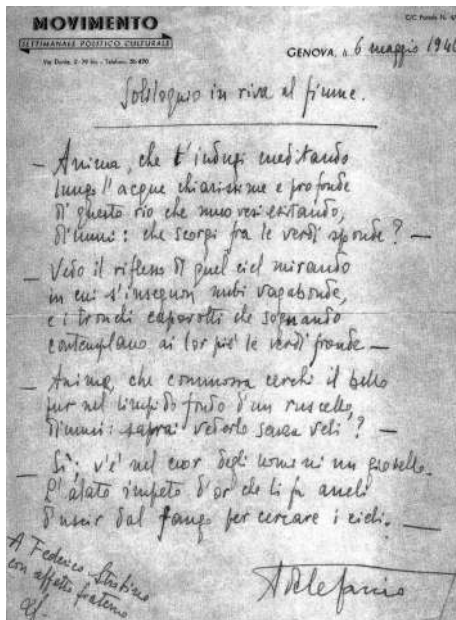 MOVIMENTO
SETTIMANALE POLITICO CULTURALE
Via Dante, 2-79 bis - Telefono, 26-670
C/C Postale N. 4/
GENOVA, a 6 maggio 1946
Soliloquio in riva al fiume.
— Anima, che t'indugi meditando
lungo l'acque chiarissime e profonde
di questo rio che muovesi esitando,
dimmi: che scorgi fra le verdi sponde? —
— Vedo il riflesso di quel ciel mirando
in cui s'inseguon nubi vagabonde,
e i tronchi capovolti che sognando
contemplano ai lor piè le verdi fronde —
— Anima, che commossa cerchi il bello
pur nel limpido fondo d'un ruscello,
dimmi: saprai vederlo senza veli? —
— Sì; v'è nel cuor degli uomini un gioiello.
L'alato impeto d'or che li fa aneli
d'uscir dal fango per cercare i cieli. —
A Federico
con affetto fraterno